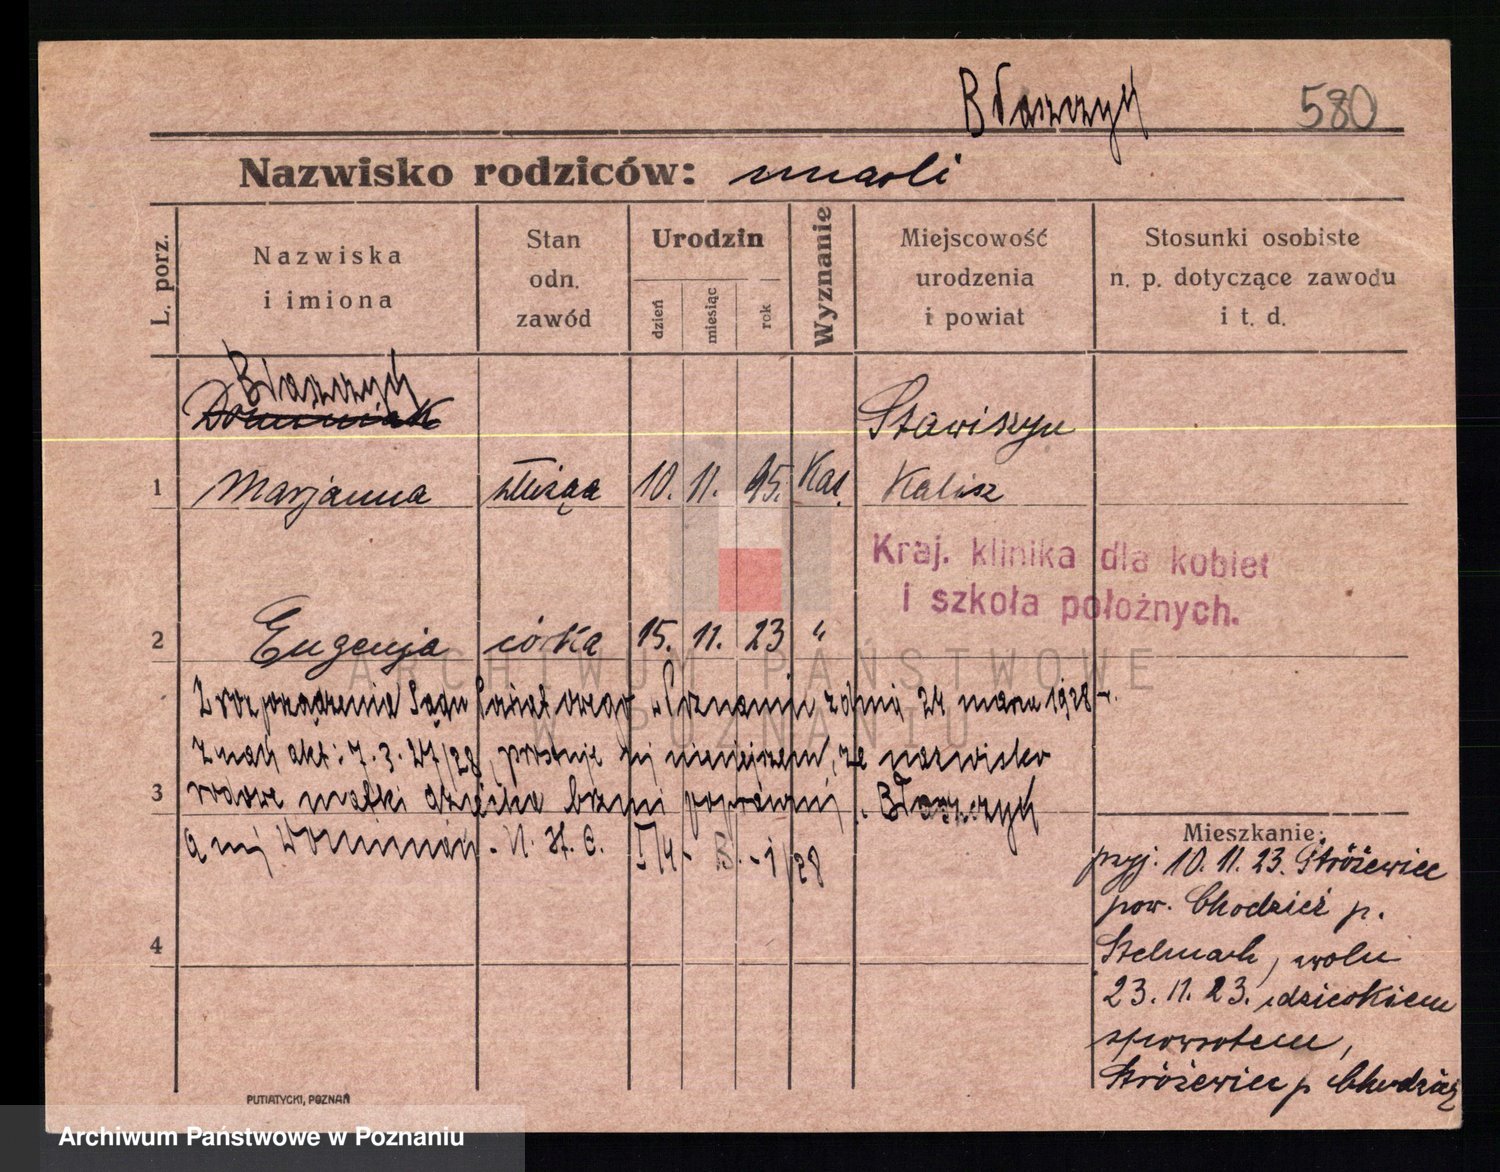 Błaszczyk 580
Nazwisko rodziców: zmarli
L. porz.
Nazwiska
i imiona
Stan
odn.
zawód
Urodzin
dzień
miesiąc
rok
Wyznanie
Miejscowość
urodzenia
i powiat
Stosunki osobiste
n. p. dotyczące zawodu
i t. d.
Błaszczyk
Dominiak Stawiszyn
1 Marjanna służąca 10. 11. 95. Kat. Kalisz
Kraj. klinika dla kobiet
i szkoła położnych.
2 Eugenja córka 15. 11. 23 "
Z rozporządzenia Sądu Powiatowego w Poznaniu z dnia 24 marca 1928 r.
Znak akt: 7. 3. 27/28, prostuje się niniejszem, że nazwisko
3 rodowe matki dziecka brzmi poprawnie: Błaszczyk
a nie Dominiak
Mieszkanie:
przyj. 10. 11. 23. Stróżewice
pow. Chodzież p.
4 Stelmach, wolu
23. 11. 23. z dzieckiem
spowrotem,
Stróżewice p Chodzież
PUTIATYCKI, POZNAŃ
ARCHIWUM PAŃSTWOWE
W POZNANIU
Archiwum Państwowe w Poznaniu